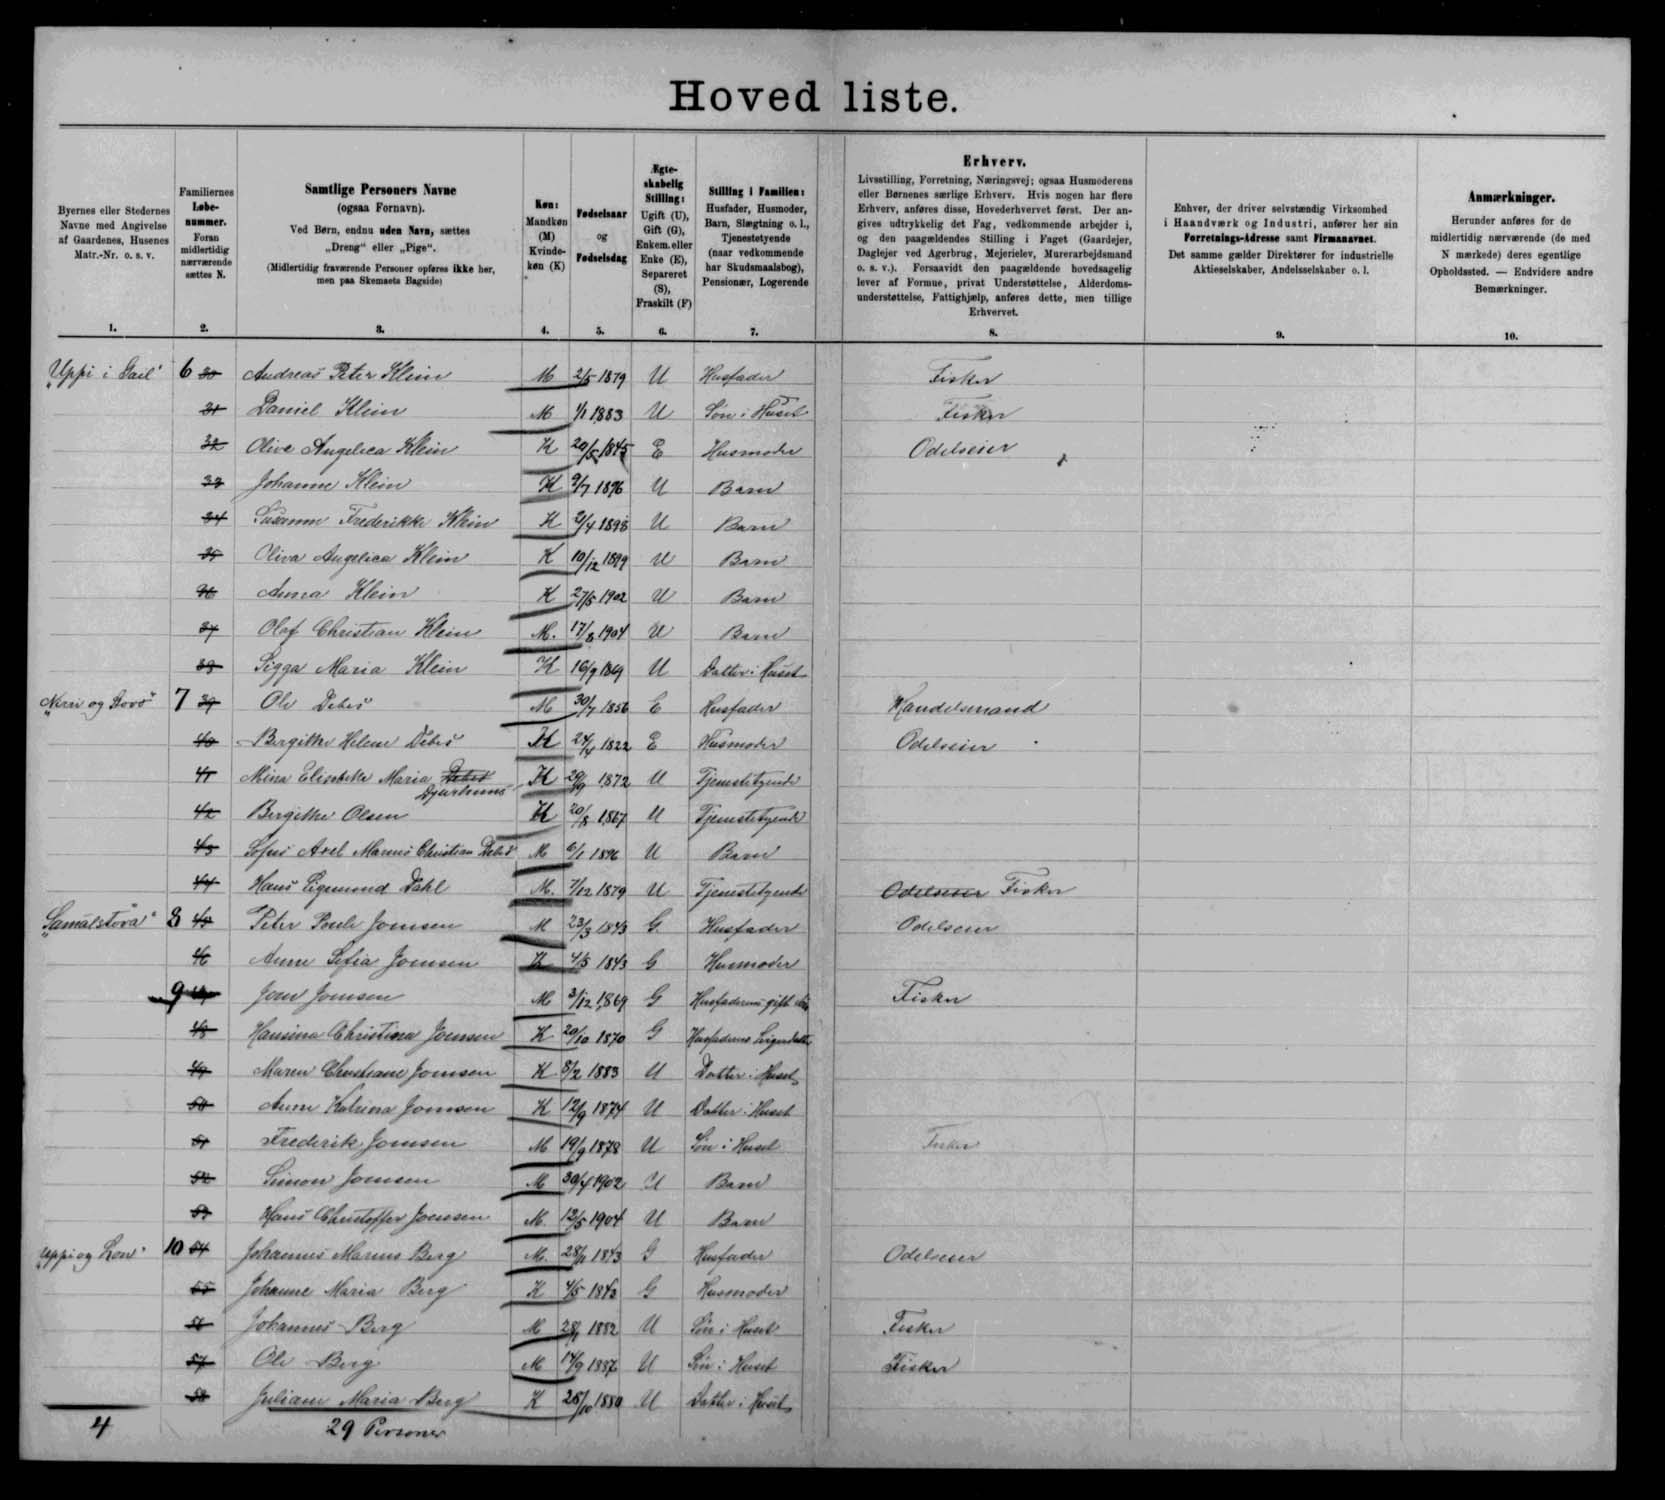 Hoved liste.
Byernes eller Stedernes
Navne med Angivelse
af Gaardenes, Husenes
Matr.-Nr. o. s. v.
1.
Familiernes
Løbe-
nummer.
Foran
midlertidig
nærværende
sættes N.
2.
Samtlige Personers Navne
(ogsaa Fornavn).
Ved Børn, endnu uden Navn, sættes
„Dreng“ eller „Pige“.
(Midlertidig fraværende Personer opføres ikke her,
men paa Skemaets Bagside)
3.
Køn:
Mandkøn
(M)
Kvinde-
køn (K)
4.
Fødselsaar
og
Fødselsdag
5.
Ægte-
skabelig
Stilling:
Ugift (U),
Gift (G),
Enkem. eller
Enke (E),
Separeret
(S),
Fraskilt (F)
6.
Stilling i Familien:
Husfader, Husmoder,
Barn, Slægtning o. l.,
Tjenestetyende
(naar vedkommende
har Skudsmaalsbog),
Pensionær, Logerende
7.
Erhverv.
Livsstilling, Forretning, Næringsvej; ogsaa Husmoderens
eller Børnenes særlige Erhverv. Hvis nogen har flere
Erhverv, anføres disse, Hovederhvervet først. Der an-
gives udtrykkelig det Fag, vedkommende arbejder i,
og den paagældendes Stilling i Faget (Gaardejer,
Daglejer ved Agerbrug, Mejerielev, Murerarbejdsmand
o. s. v.). Forsaavidt den paagældende hovedsagelig
lever af Formue, privat Understøttelse, Alderdoms-
understøttelse, Fattighjælp, anføres dette, men tillige
Erhvervet.
8.
Enhver, der driver selvstændig Virksomhed
i Haandværk og Industri, anfører her sin
Forretnings-Adresse samt Firmanavnet.
Det samme gælder Direktører for industrielle
Aktieselskaber, Andelsselskaber o. l.
9.
Anmærkninger.
Herunder anføres for de
midlertidig nærværende (de med
N mærkede) deres egentlige
Opholdssted. — Endvidere andre
Bemærkninger.
10.
„Uppi i 6 30 Andreas Peter Klein M 2/5 1879 U Husfader Fisker
31 Daniel Klein M 1/1 1883 U Søn i Huset Fisker
32 Olive Angelica Klein K 20/5 1845 E Husmoder Odelseier
33 Johanne Klein K 9/7 1896 U Barn
34 Susanne Frederikke Klein K 2/4 1898 U Barn
35 Oliva Angelica Klein K 10/12 1899 U Barn
36 Anna Klein K 27/5 1902 U Barn
37 Olaf Christian Klein M. 17/8 1904 U Barn
38 Sigga Maria Klein K 16/9 1869 U Datter i Huset
7 39 Ole Debes M 30/7 1856 E Husfader Handelsmand
40 Birgitte Helene Debes K 24/4 1822 E Husmoder Odelseier
41 Mina Elisabeth Maria Debes K 29/9 1872 U Tjenestetyende
Djurhuus
42 Birgitte Olsen K 20/8 1867 U Tjenestetyende
43 Sofus Axel Marius Christian Debes M 6/1 1896 U Barn
44 Hans Sigmund Dahl M. 7/12 1879 U Tjenestetyende Odelseier Fisker
„Sámalstova“ 8 45 Peter Poule Joensen M 23/3 1843 G Husfader Odelseier
46 Anne Sofia Joensen K 4/5 1843 G Husmoder
9 47 Joen Joensen M 3/12 1869 G Husfaderens gift Søn Fisker
48 Hansina Christina Joensen K 20/10 1870 G Husfaderens Svigerdatter
49 Maren Christiane Joensen K 8/2 1883 U Datter i Huset
50 Anne Katrina Joensen K 12/9 1874 U Datter i Huset
51 Frederik Joensen M 19/9 1878 U Søn i Huset Fisker
52 Simon Joensen M 30/4 1902 U Barn
53 Hans Christoffer Joensen M. 12/5 1904 U Barn
10 54 Johannes Marius Berg M. 28/11 1843 G Husfader Odelseier
55 Johanne Maria Berg K 4/5 1843 G Husmoder
56 Johannes Berg M 28/1 1882 U Søn i Huset Fisker
57 Ole Berg M 14/9 1887 U Søn i Huset Fisker
58 Juliane Maria Berg K 28/10 1880 U Datter i Huset
4 29 Personer